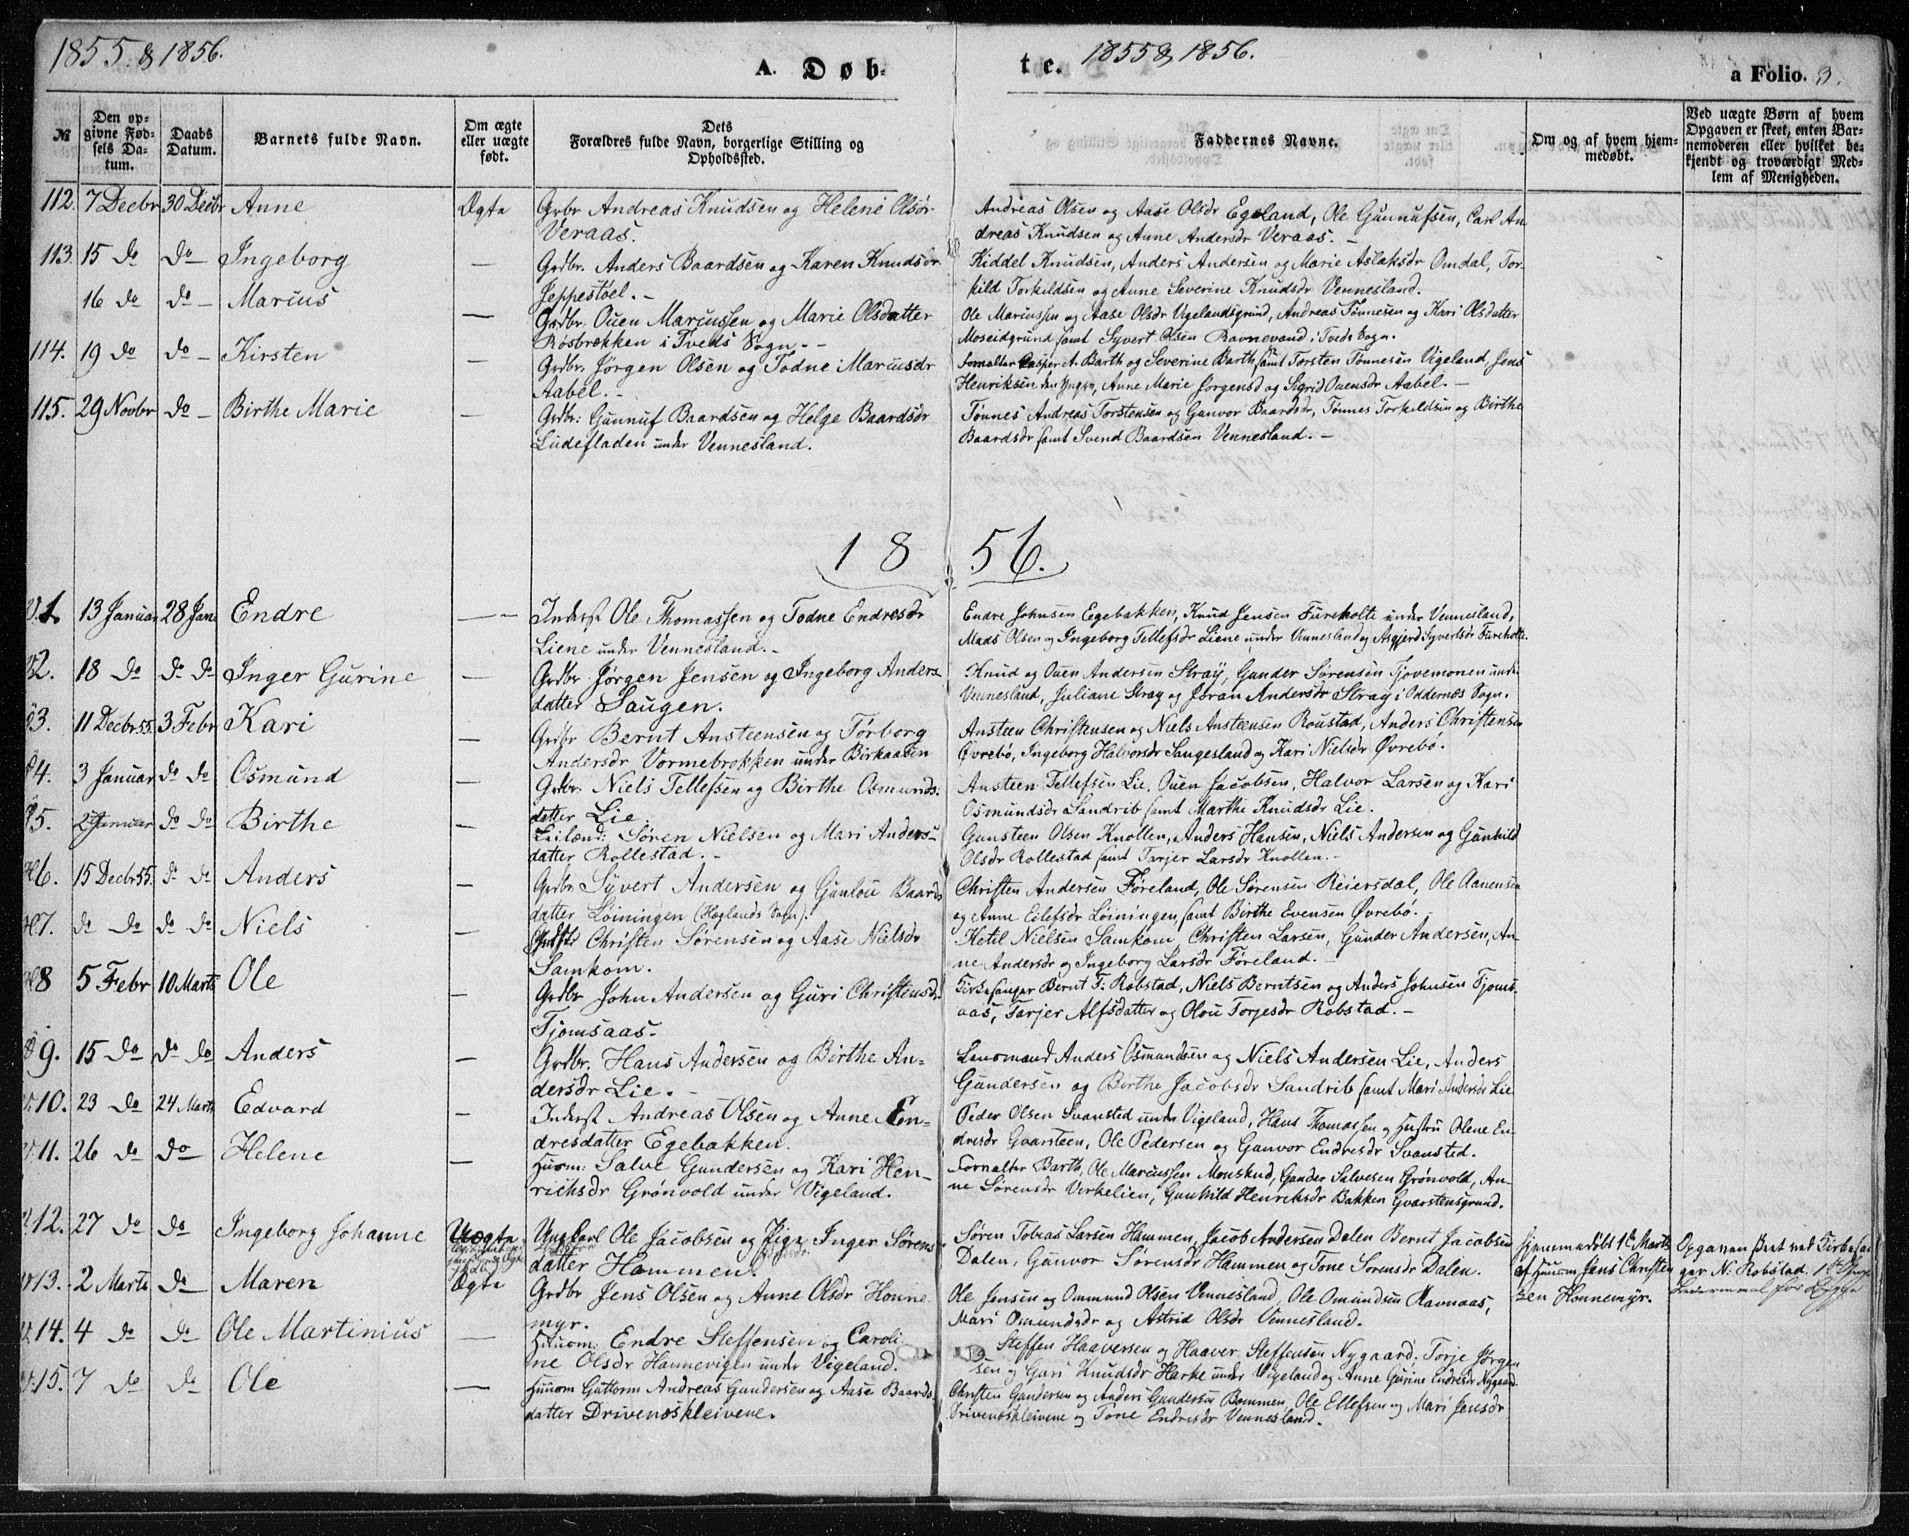 1855 & 1856.
A. Døb-
te.
1855 & 1856.
a Folio. 3.
№
Den op-
givne Fød-
sels Da-
tum.
Daabs
Datum.
Barnets fulde Navn.
Om ægte
eller uægte
født.
Dets
Forældres fulde Navn, borgerlige Stilling og
Opholdssted.
Faddernes Navne.
Om og af hvem hjem-
medøbt.
Ved uægte Børn af hvem
Opgaven er skeet, enten Bar-
nemoderen eller hvilket be-
kjendt og troværdigt Med-
lem af Menigheden.
112. 7 Decbr 30 Decbr Anne Ægte Grbr Andreas Knudsen og Helene Olsdr
Veraas.
Andreas Olsen og Aase Olsdr Egeland, Ole Gunnufsen, Carl An
dreas Knudsen og Anne Andersdr Veraas. –
113. 15 do do – Ingeborg — Grdbr. Anders Baardsen og Karen Knudsdr
Jeppestøel. –
Kiddel Knudsen, Anders Andersen og Marie Aslaksdr Omdal, Tor-
kild Torkildsen og Anne Severine Knudsdr Vennesland.
16 do do – Marcus — Grdbr. Ouen Marcussen og Marie Olsdatter
Rosbrokken i Tveds Sogn. –
Ole Mariussen og Aase Olsdr Vigelandsgrund, Andreas Tønnesen og Kari Olsdatter
Moseidgrund samt Syvert Olsen Ravnevand i Tveds Sogn.
114. 19 do do – Kirsten — Grdbr. Jørgen Olsen og Todne Marcusdr
Aabel. –
Casper A. Barth og Severine Barth samt Torsten Tønnesen Vigeland, Jens
Henriksen den Yngre, Anne Marie Jørgensd og Sigrid Ouensdr Aabel. –
115. 29 Novbr do – Birthe Marie — Grdbr: Gunnuf Baardsen og Helge Baardsdr
Ludefladen under Vennesland.
Tønnes Andreas Torstensen og Gunvor Baardsdr, Tønnes Torkildsen og Birthe
Baardsdr samt Svend Baardsen Vennesland. –
18 56.
V. 1. 13 Januar 28 Jan Endre — Inderst Ole Thomassen og Todne Endresdr
Liene under Vennesland. –
Endre Johnsen Egebakken, Knud Jensen Fureholte under Vennesland,
Mads Olsen og Ingeborg Tellefsdr Liene under Vennesland og Asgjerd Syvertsdr Fureholte.
2. 18 do do do Inger Gurine — Grdbr Jørgen Jensen og Ingeborg Anders-
datter Saugen.
Knud og Ouen Andersen Stray, Gunder Sørensen Tjovemonen under
Vennesland, Juliane Stray og Joran Andersdr Stray i Oddernes Sogn.
3. 11 Decbr 55. 3 Febr Kari — Grdbr Bernt Ansteensen og Torborg
Andersdr Vormebrokken under Birkaasen
Austeen Christensen og Niels Austeensen Roustad, Anders Christensen
Øvrebø, Ingeborg Halvorsdr Sangesland og Kari Nielsdr Øvrebø.
4. 3 Januar do do Osmund — Grdbr. Niels Tellefsen og Birthe Osmunds-
datter Lie.
Austeen Tellefsen Lie, Ouen Jacobsen, Halvor Larsen og Kari
Osmundsdr Sandrib samt Marthe Knudsdr Lie.
5. 2 Januar do do Birthe — Leilend: Søren Nielsen og Mari Anders-
datter Rollestad. –
Gunsteen Olsen Knollen, Anders Hansen, Niels Andersen og Gunhild
Olsdr Rollestad samt Tarjer Larsdr Knollen. –
6. 15 Decbr 55. do do Anders — Grdbr Syvert Andersen og Gunlou Baards
datter Løiningen (Høglands Sogn).
Christen Andersen Føreland, Ole Sørensen Reiersdal, Ole Aanensen
og Anne Eilefsdr Løiningen, samt Birthe Evensen Øvrebø. –
7. do do do do Niels — Christen Sørensen og Aase Nielsdr
Samkom.
Ketil Nielsen Samkom, Christen Larsen, Gunder Andersen, An-
ne Andersdr og Ingeborg Larsdr Føreland. –
8 5 Febr 10 Marts Ole — Grdbr John Andersen og Guri Christensdr
Tjomsaas.
Kirkesanger Bernt T. Robstad, Niels Berntsen og Anders Johnsen Tjoms-
aas, Tarjer Alfsdatter og Olou Torjesdr Robstad. –
9. 15 do do do Anders — Grdbr. Hans Andersen og Birthe An-
dersdr Lie. –
Lensmand Anders Osmundsen og Niels Andersen Lie, Anders
Gundersen og Birthe Jacobsdr Sandrib samt Mari Andersdr Lie
10. 23 do 24 Marts Edvard — Inderst Andreas Olsen og Anne En-
dresdatter Egebakken.
Peder Olsen Svansted under Vigeland, Hans Thomassen og Hustru Olene En-
dresdr Gvarsteen, Ole Pedersen og Gunvor Endresdr Svansted.
11. 26 do do Helene — Huusm: Salve Gundersen og Kari Hen-
richsdr Grønvold under Vigeland.
Barth, Ole Marcussen Monskud, Gunder Salvesen Grønvold, An-
ne Sørensdr Virkelien, Gunhild Henriksdr Bakken Gvarstensgrund.
12. 27 do do Ingeborg Johanne Uægte Ungkarl Ole Jacobsen og Pige Inger Sørens-
datter Hommen.
Søren Tobias Larsen Hammen, Jacob Andersen Dalen Bernt Jacobsen
Dalen, Gunvor Sørensdr Hammen og Tone Sørensdr Dalen.
Hjemmedøbt 1te Marts
af Huusm Jens Christen
sen Honnemyr.
Opgaven skeet ved Kirkesan
ger N. Robstad. 1te
Leiermaal for Begge
13. 2 Marts do Maren Ægte Grdbr Jens Olsen og Anne Olsdr Honne-
myr.
Ole Jensen og Ommund Olsen Vennesland, Ole Omundsen Ravnaas,
Mari Omundsdr og Astrid Olsdr Vennesland.
14. 4 do do Ole Martinius — Huusm: Endre Steffensen og Caroli-
ne Olsdr Hannevigen under Vigeland.
Steffen Haaversen og Haaver Steffensen Nygaard. Torje Jørgen
sen og Guri Knudsdr Harke under Vigeland og Anne Gurine Endresdr Nygaard
15. 7 do do Ole — Huusm Guttorm Andreas Gundersen og Aase Baards
datter Drivenskleivene.
Christen Gundersen og Anders Gundersen Bommen, Ole Ellefsen og Mari Jensdr
Drivenskleivene og Tone Endresdr Vennesland.